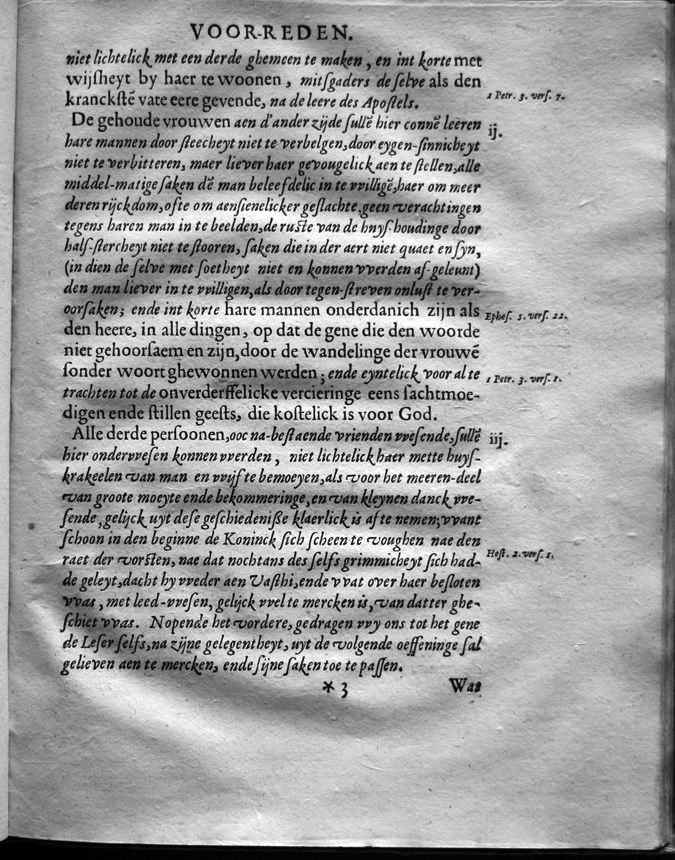 VOOR-REDEN.
niet lichtelick met een derde ghemeen te maken, en int korte met
wijſheyt by haer te woonen, mitſgaders de ſelve als den
kranckſtē vate eere gevende, na de leere des Apoſtels.
1 Petr. 3. verſ. 7.
De gehoude vrouwen aen d'ander zijde ſullē hier connē leeren
ij.
hare mannen door ſteecheyt niet te verbelgen, door eygen-ſinnicheyt
niet te verbitteren, maer liever haer gevougelick aen te ſtellen, alle
middel-matige ſaken dē man beleefdelic in te vvilligē, haer om meer
deren rijckdom, ofte om aenſienelicker geſlachte, geen verachtingen
tegens haren man in te beelden, de ruſte van de huyſ-houdinge door
half-ſtercheyt niet te ſtooren, ſaken die in der aert niet quaet en ſyn,
(in dien de ſelve met ſoetheyt niet en konnen vverden af-geleunt)
den man liever in te vvilligen, als door tegen-ſtreven onluſt te ver-
oorſaken; ende int korte hare mannen onderdanich zijn als
Epheſ. 5. verſ. 22.
den heere, in alle dingen, op dat de gene die den woorde
niet gehoorſaem en zijn, door de wandelinge der vrouwē
ſonder woort ghewonnen werden; ende eyntelick voor al te
1 Petr. 3. verſ. 1.
trachten tot de onverderffelicke vercieringe eens ſachtmoe-
digen ende ſtillen geeſts, die koſtelick is voor God.
Alle derde perſoonen, ooc na-beſtaende vrienden vveſende, ſullē
iij.
hier ondervveſen konnen vverden, niet lichtelick haer mette huyſ-
krakeelen van man en vvijf te bemoeyen, als voor het meeren-deel
van groote moeyte ende bekommeringe, en van kleynen danck vve-
ſende, gelijck uyt deſe geſchiedeniſſe klaerlick is af te nemen; vvant
ſchoon in den beginne de Koninck ſich ſcheen te voughen nae den
raet der vorſten, nae dat nochtans des ſelfs grimmicheyt ſich had-
Heſt. 2. verſ. 1.
de geleyt, dacht hy vveder aen Vaſthi, ende vvat over haer beſloten
vvas, met leed-vveſen, gelijck vvel te mercken is, van datter ghe-
ſchiet vvas. Nopende het vordere, gedragen vvy ons tot het gene
de Leſer ſelfs, na zijne gelegentheyt, uyt de volgende oeffeninge ſal
gelieven aen te mercken, ende ſijne ſaken toe te paſſen.
* 3
Wat